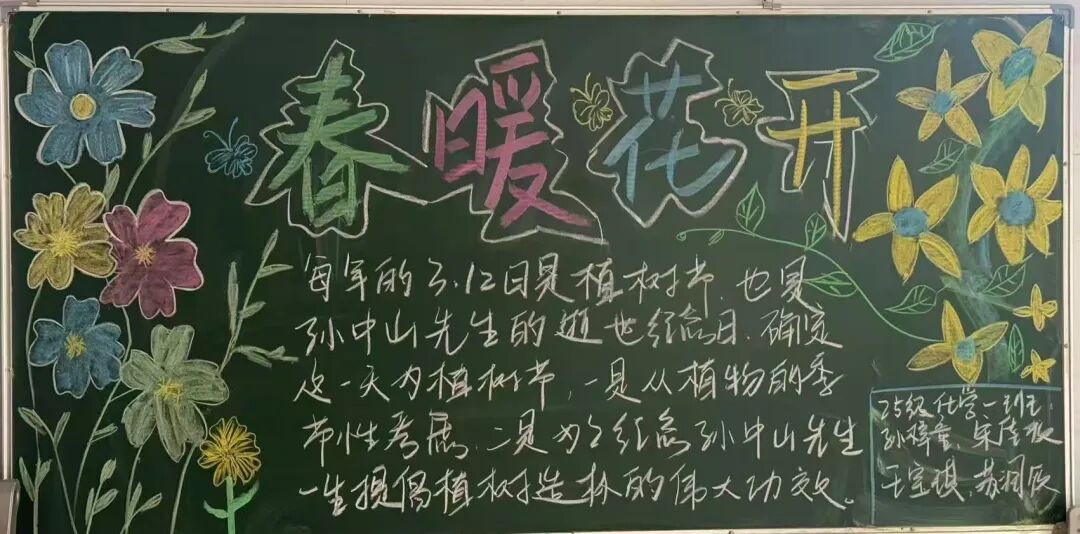 春暖花开
每年的3.12日是植树节.也是
孙中山先生的逝世纪念日.确定
这一天为植树节,一是从植物的季
节性考虑.二是为了纪念孙中山先生
一生提倡植树造林的伟大功效。
25级化学一班
孙 宋
王宝琪 苏润辰